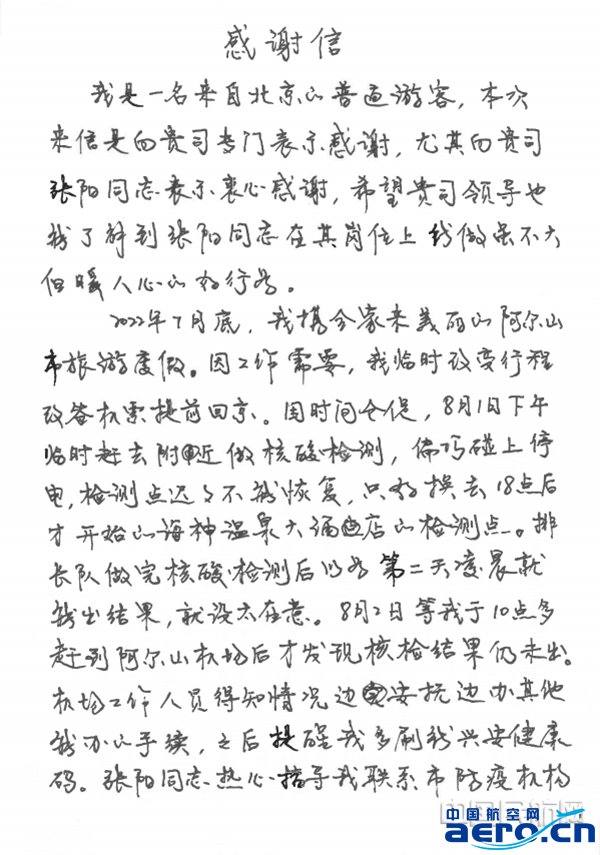 感谢信
我是一名来自北京的普通游客，本次
来信是向贵司专门表示感谢，尤其向贵司
张阳同志表示衷心感谢，希望贵司领导也
能了解到张阳同志在其岗位上能做虽不大
但暖人心的好行为。
2022年7月底，我携全家来美丽的阿尔山
市旅游度假。因工作需要，我临时改变行程
改签机票提前回京。因时间仓促，8月1日下午
临时赶去附近做核酸检测，偏巧碰上停
电，检测点迟迟不能恢复，只好换去18点后
才开始的海神温泉大酒店的检测点。排
长队做完核酸检测后以为第二天凌晨就
能出结果，就没太在意。8月2日等我于10点多
赶到阿尔山机场后才发现核检结果仍未出。
机场工作人员得知情况边安抚边办其他
能办的手续，之后提醒我多刷新兴安健康
码。张阳同志热心指导我联系市防疫机构
中国民航网
中国航空网
aero.cn